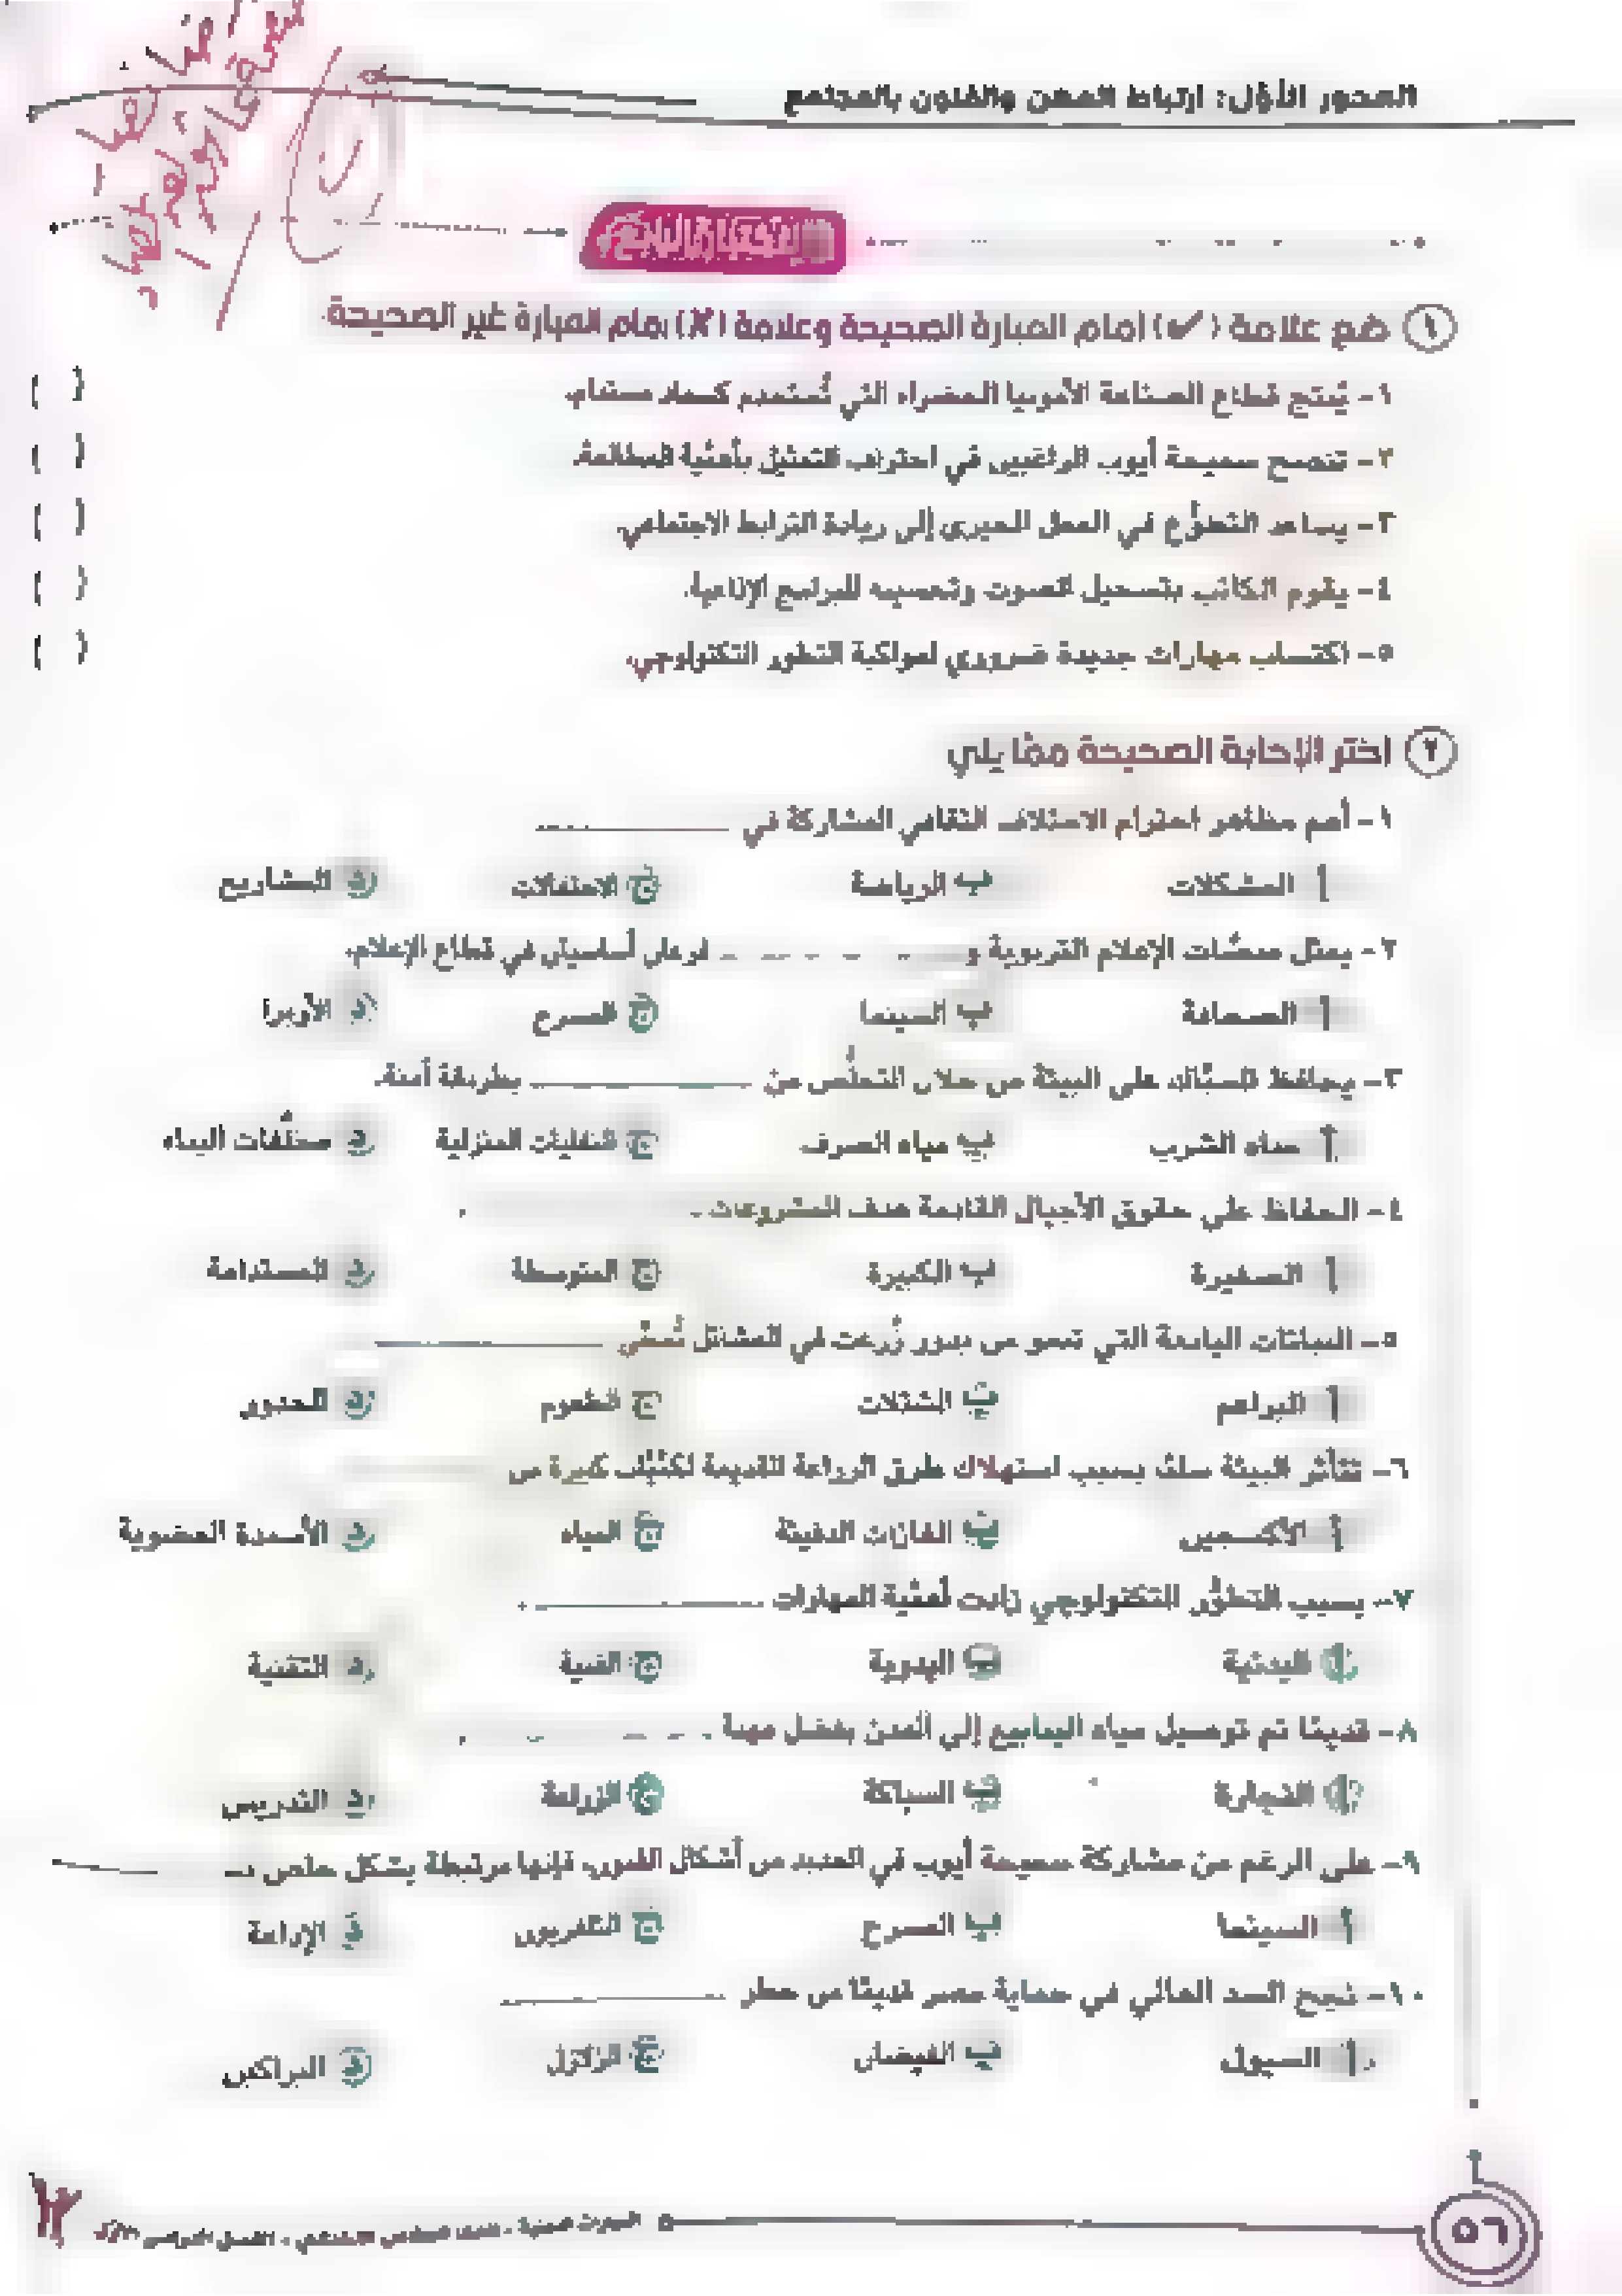 المحور الأول: ارتباط المهن والفنون بالمجتمع
١ ضع علامة (✓) أمام العبارة الصحيحة وعلامة (X) أمام العبارة غير الصحيحة
١- يُنتج قطاع الصناعة الأمونيا الخضراء التي تُستخدم كسماد مستدام. ( )
٢- تنصح سميحة أيوب الراغبين في احتراف التمثيل بأهمية المطالعة. ( )
٣- يساعد التطوُّع في العمل الخيري إلى زيادة الترابط الاجتماعي. ( )
٤- يقوم الكاتب بتسجيل الصوت وتحسينه للبرامج الإذاعية. ( )
٥- اكتساب مهارات جديدة ضروري لمواكبة التطور التكنولوجي. ( )
٢ اختر الإجابة الصحيحة ممَّا يلي
١- أهم مظاهر احترام الاختلاف الثقافي المشاركة في
أ المشكلات ب الرياضة ج الاحتفالات د المشاريع
٢- يمثل منصَّات الإعلام التربوية و فرعان أساسيان في قطاع الإعلام.
أ الصحافة ب السينما ج المسرح د الأوبرا
٣- يحافظ السبَّاك على البيئة من خلال التخلُّص من بطريقة آمنة.
أ مياه الشرب ب مياه الصرف ج النفايات المنزلية د مخلَّفات البناء
٤- الحفاظ على حقوق الأجيال القادمة هدف المشروعات .
أ الصغيرة ب الكبيرة ج المتوسطة د المستدامة
٥- النباتات اليانعة التي تنمو من بذور زُرعت في المشاتل تُسمَّى
أ البراعم ب الشتلات ج د الجذور
٦- تتأثر البيئة سلبًا بسبب استهلاك طرق الزراعة القديمة لكميَّات كبيرة من
أ الأكسجين ب الغازات الدفيئة ج المياه د الأسمدة العضوية
٧- بسبب التطوُّر التكنولوجي زادت أهمِّية المهارات .
أ البدنية ب اليدوية ج الفنية د التقنية
٨- قديمًا تم توصيل مياه الينابيع إلى المدن بفضل مهنة .
أ النجارة ب السباكة ج الزراعة د التدريس
٩- على الرغم من مشاركة سميحة أيوب في العديد من أشكال الفنون، فإنها مرتبطة بشكل خاص بـ
أ السينما ب المسرح ج التلفزيون د الإذاعة
١٠- نجح السد العالي في حماية مصر قديمًا من خطر
أ السيول ب الفيضان ج الزلازل د البراكين
٥٦